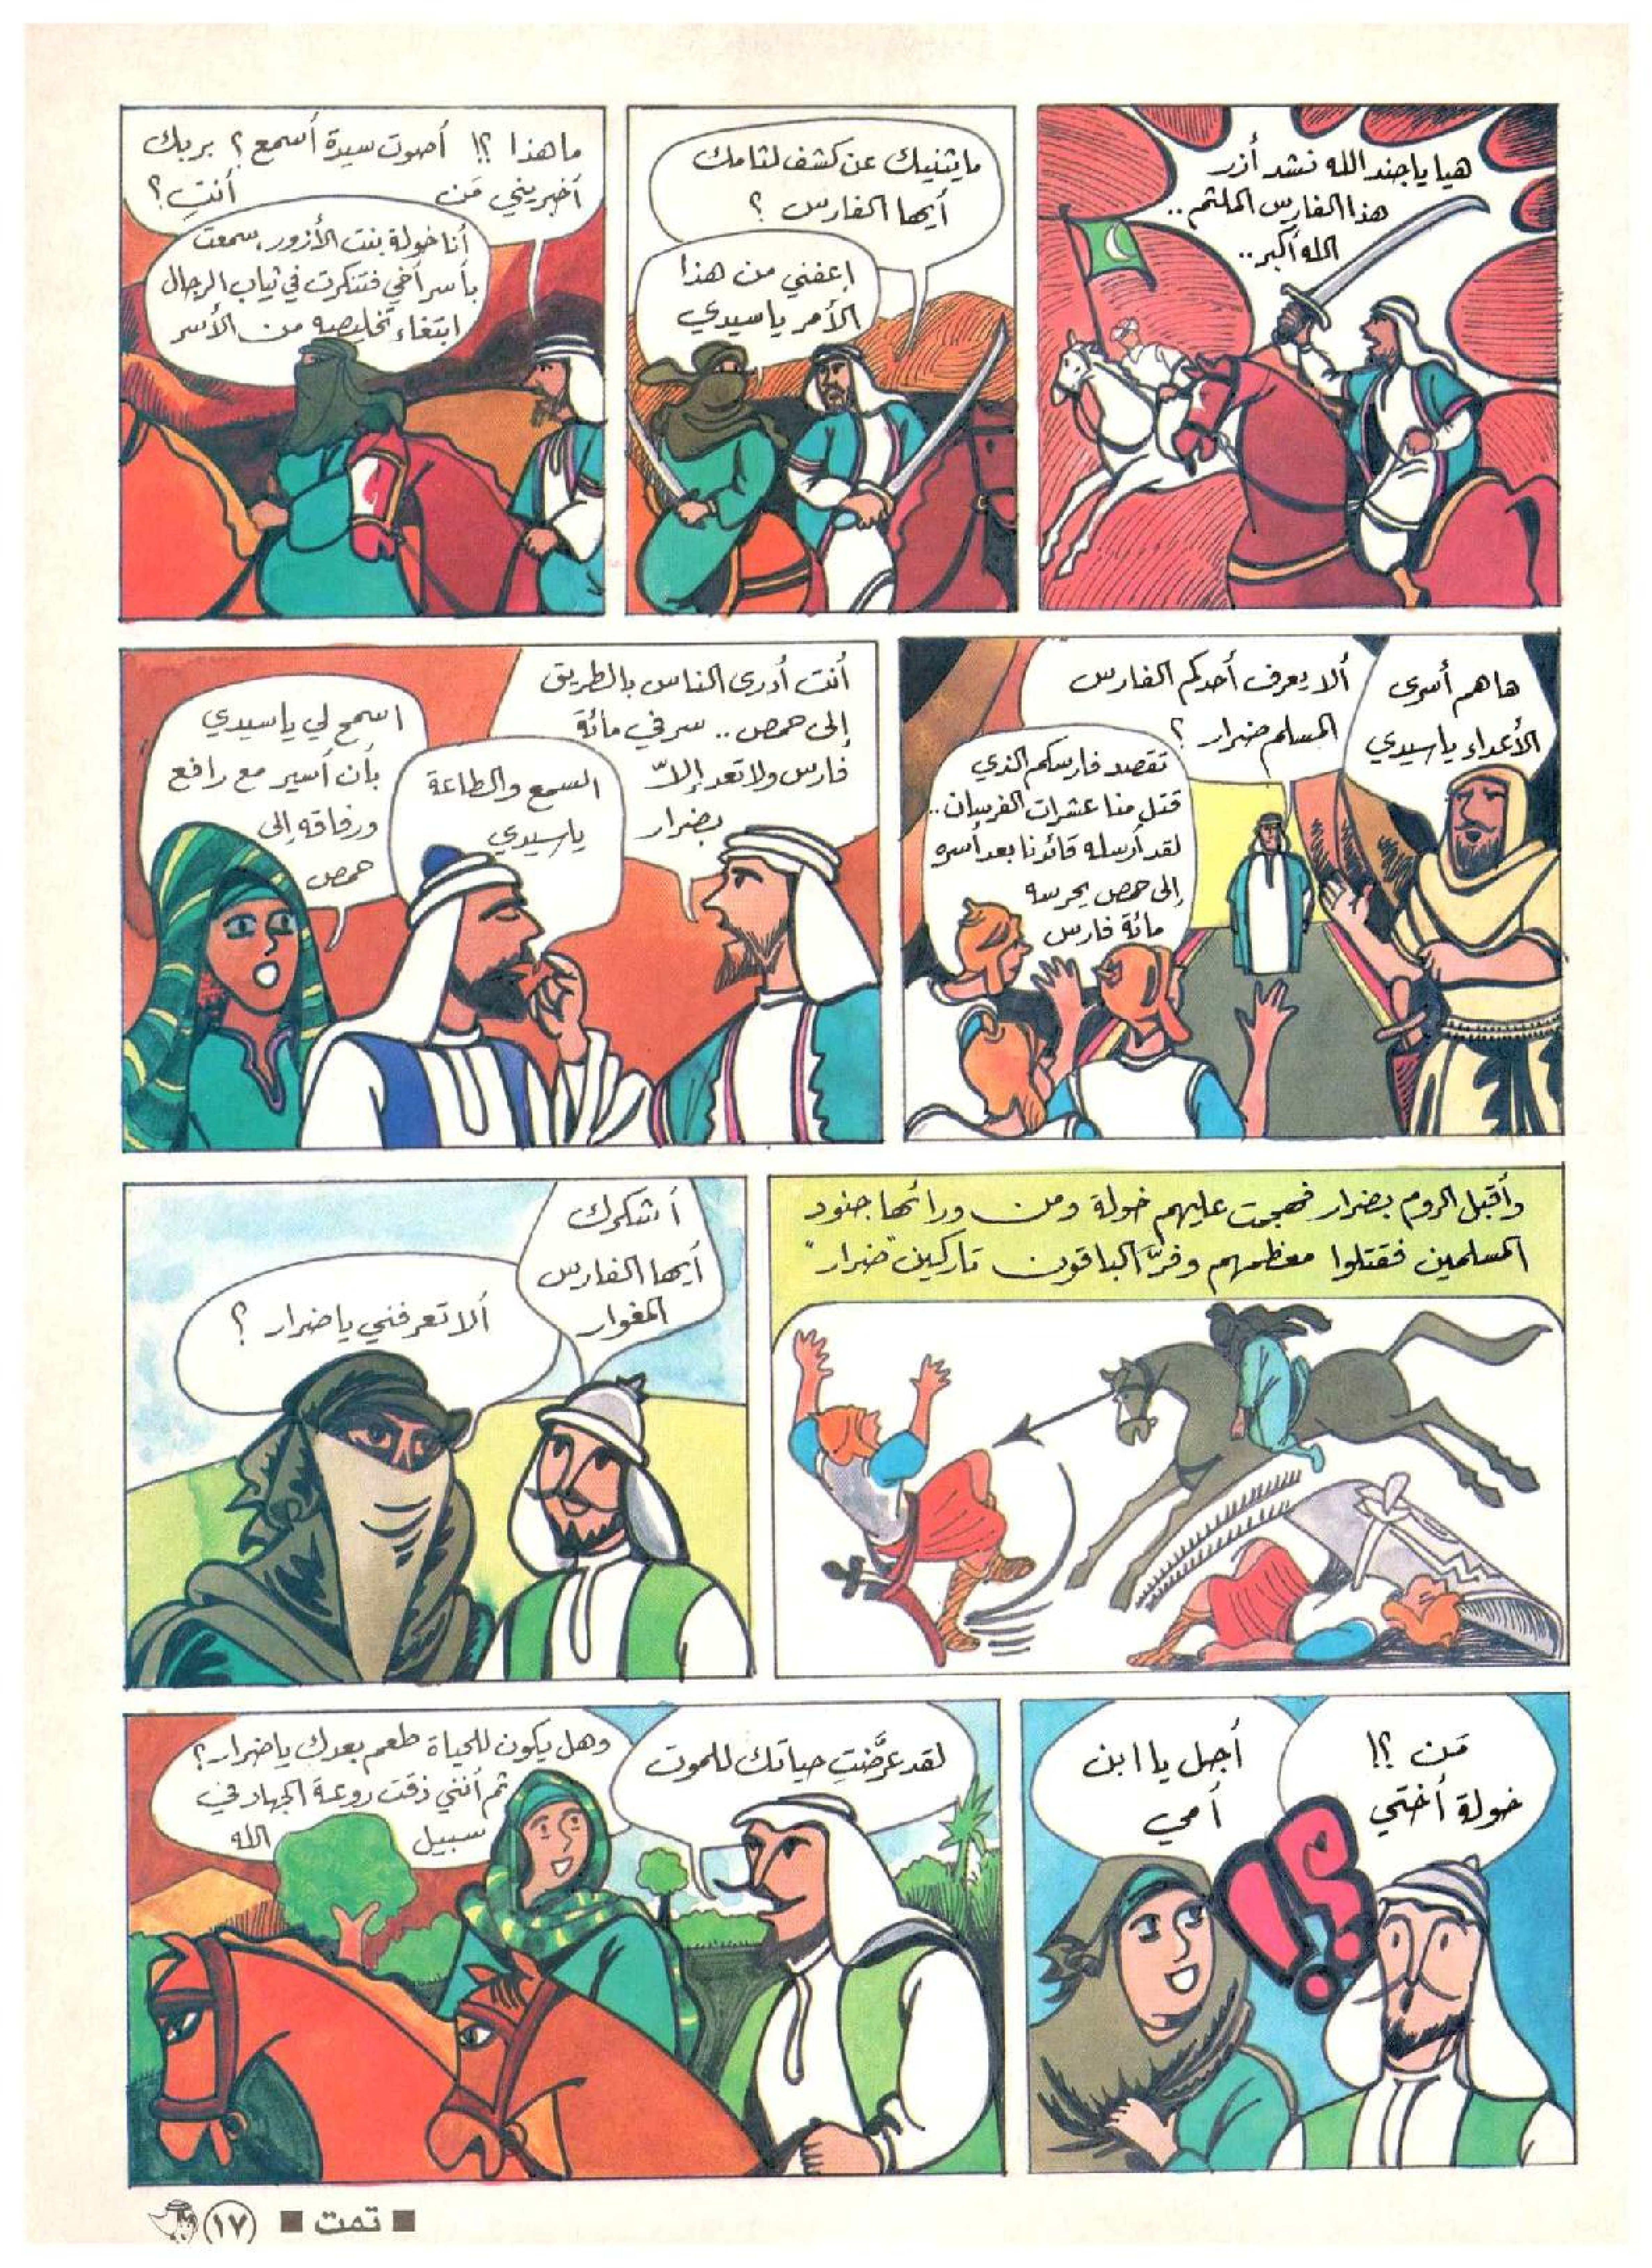 هيا يا جند الله نشد أزر
هذا الفارس الملثم ..
الله أكبر ..
ما يثنيك عن كشف لثامك
أيها الفارس ؟
إعفني من هذا
الأمر يا سيدي
ما هذا ؟! أصوت سيدة أسمع ؟ بربك
أخبريني مَن أنتِ ؟
أنا خولة بنت الأزور، سمعت
بأسر أخي فتنكرت في ثياب الرجال
ابتغاء تخليصه من الأسر
ها هم أسرى
الأعداء يا سيدي
ألا يعرف أحدكم الفارس
المسلم ضرار ؟
تقصد فارسكم الذي
قتل منا عشرات الفرسان ..
لقد أرسله قائدنا بعد أسره
إلى حمص يحرسه
مائة فارس
أنت أدرى الناس بالطريق
إلى حمص .. سر في مائة
فارس ولا تعد إلاّ
بضرار
السمع والطاعة
يا سيدي
اسمح لي يا سيدي
بأن أسير مع رافع
ورفاقه إلى
حمص
وأقبل الروم بضرار فهجمت عليهم خولة ومن ورائها جنود
المسلمين فقتلوا معظمهم وفرّ الباقون تاركين "ضرار"
أشكرك
أيها الفارس
المغوار
ألا تعرفني يا ضرار ؟
مَن ؟!
خولة أختي
أجل يا ابن
أمي
!؟
لقد عرَّضتِ حياتك للموت
وهل يكون للحياة طعم بعدك يا ضرار ؟
ثم أنني ذقت روعة الجهاد في
سبيل الله
■ تمت ■ ١٧